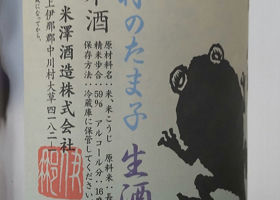 のたま子
生酒
酒
原材料名:米、米こうじ 原料米:長
精米歩合:59% アルコール分:16
保存方法:冷蔵庫に保管してください
米澤酒造株式会社
上伊那郡中川村大草四一八二
になってから。